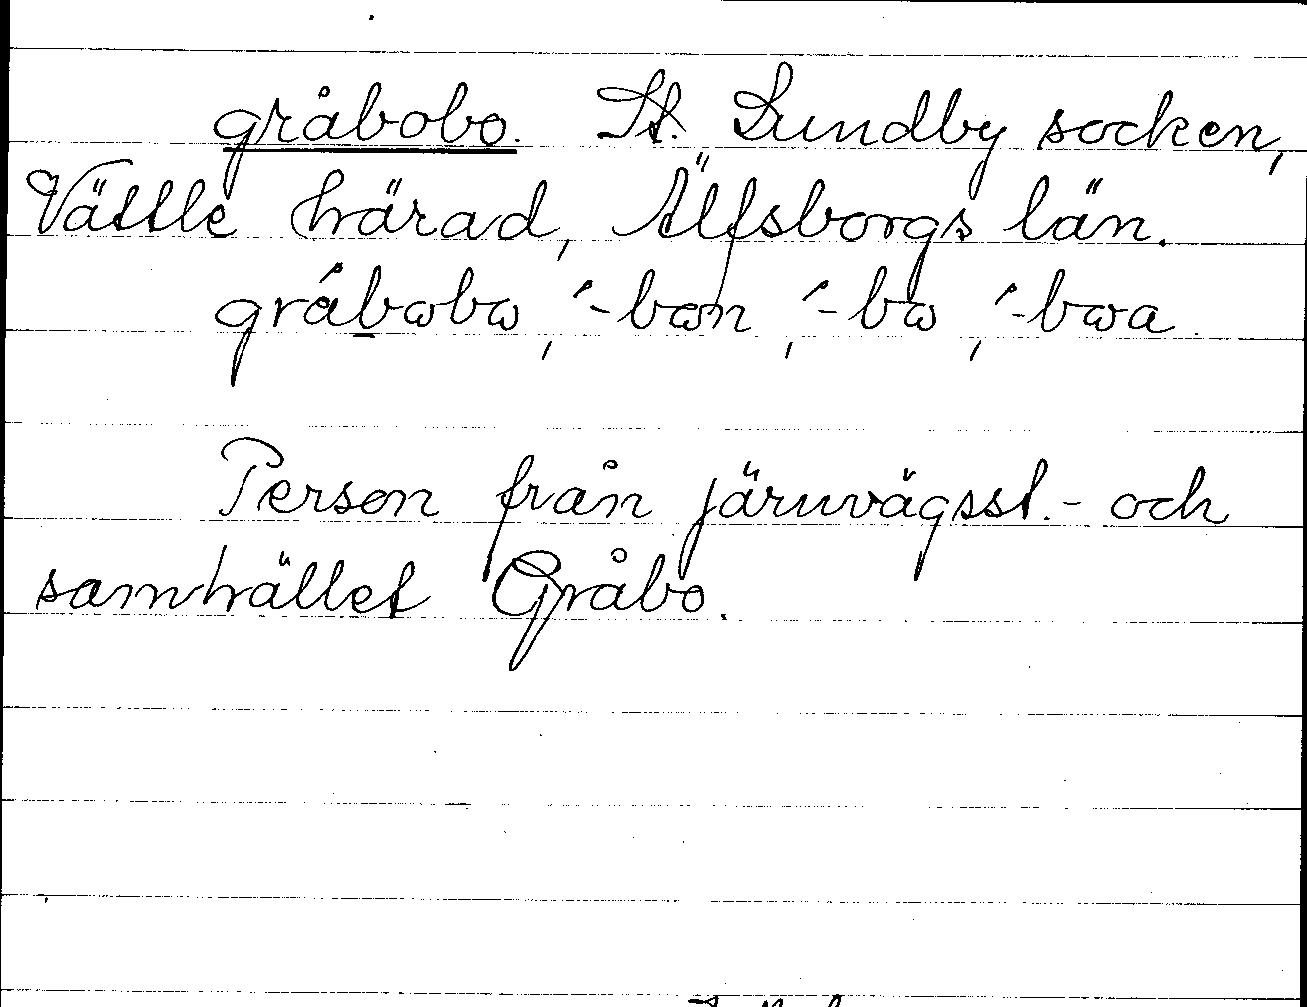 gråbobo. St. Lundby socken,
Vättle härad, Älfsborgs län.
gråbωbω, ´-bωn, ´-bω, ´-bωa.
Person från järnvägsst.- och
samhället Gråbo.